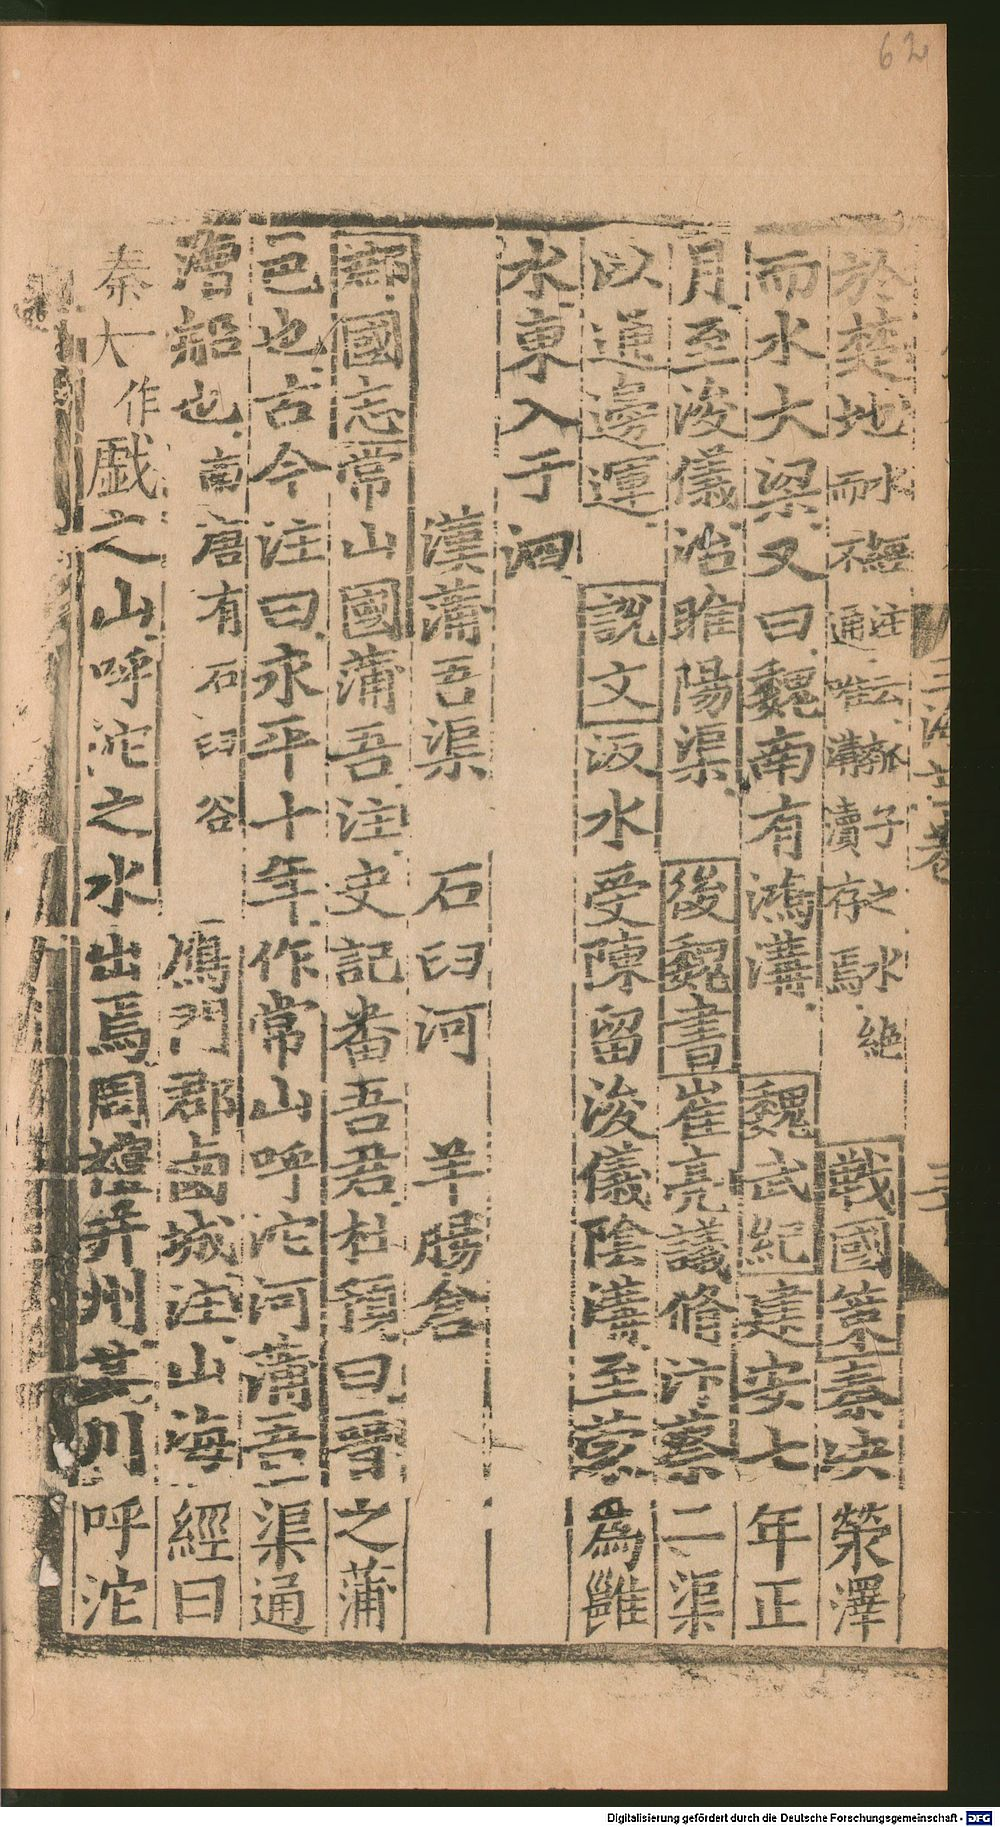 62
於楚地水注云子之水絶而不通唯溝瀆存焉戰國策秦決滎澤
而水大梁又曰魏南有鴻溝魏武紀建安七年正
月至浚儀治睢陽渠後魏書崔亮議修汴蔡二渠
以通邊運說文汳水受陳留浚儀陰溝至蒙爲雝
水東入于泗
漢蒲吾渠 石臼河 羊腸倉
郡國志常山國蒲吾注史記番吾君杜預曰晉之蒲
邑也古今注曰永平十年作常山呼沱河蒲吾渠通
漕船也南唐有石臼谷鴈門郡鹵城注山海經曰
秦大一作戲之山呼沱之水出焉周禮并州其川呼沱
Digitalisierung gefördert durch die Deutsche Forschungsgemeinschaft - DFG